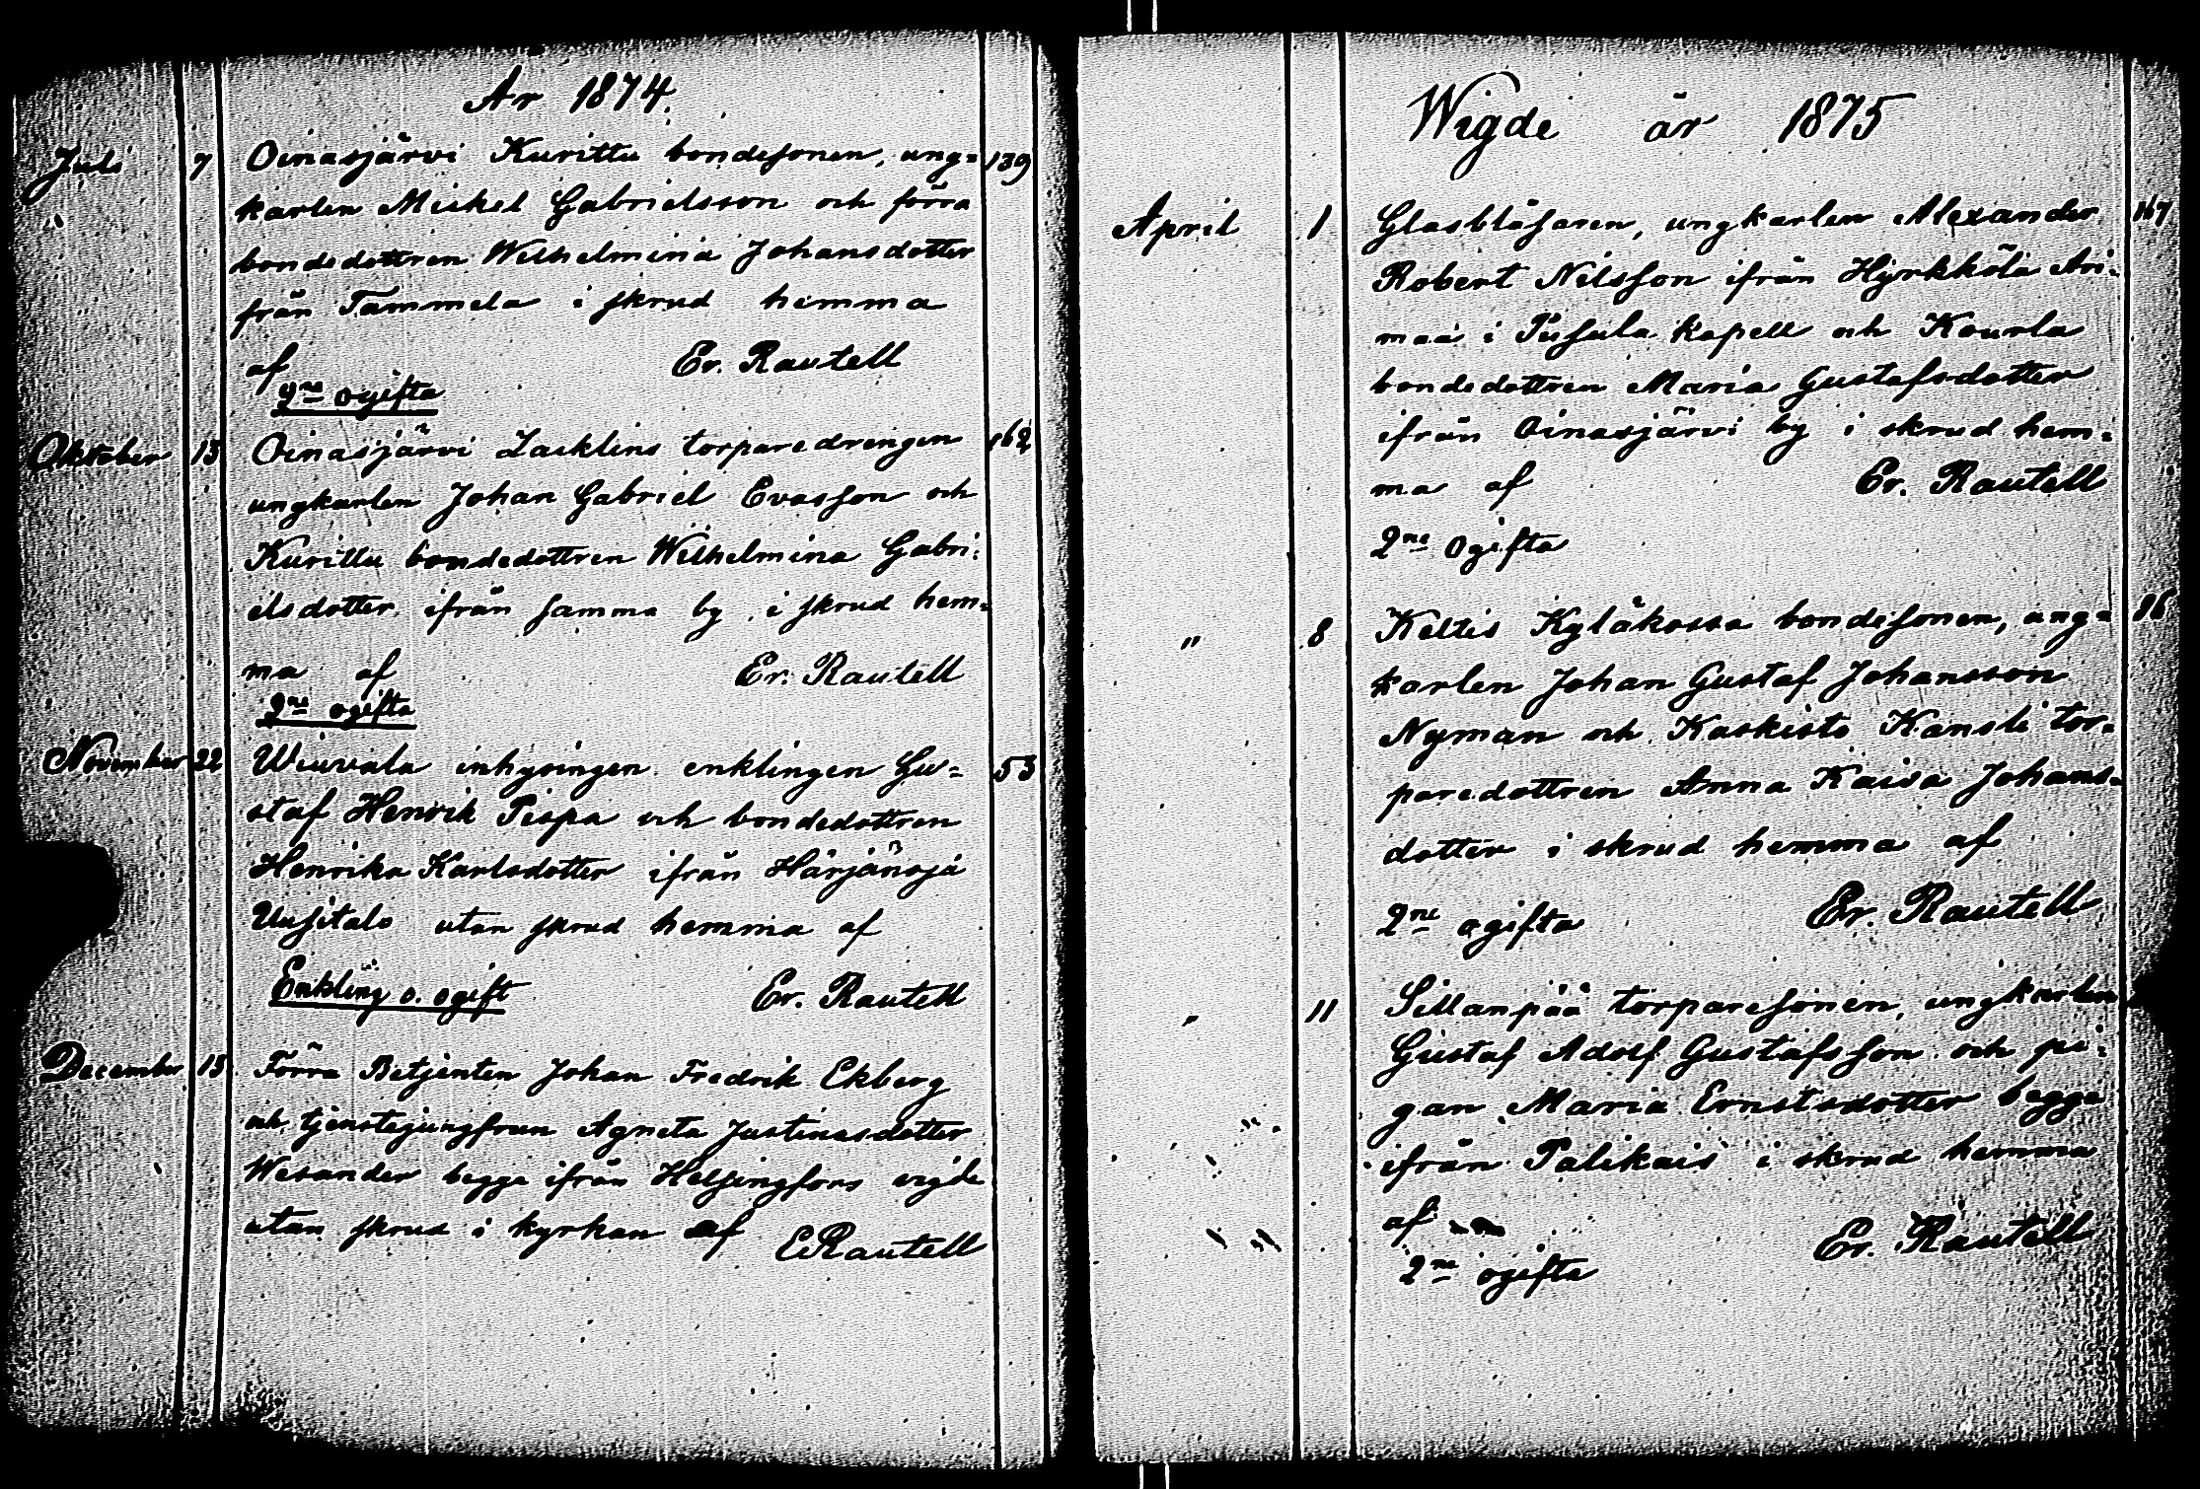 År 1874.
Juli 7 Oinasjärvi Kurittu bondesonen, ung= 139
karlen Mickel Gabrielsson och förra
bondedottren Wilhelmina Johansdotter
från Tammela i skrud hemma
af Er. Rautell
2ne ogifta
Oktober 13 Oinasjärvi Lacklins torparedrengen 162
ungkarlen Johan Gabriel Evasson och
Kurittu bondedottren Wilhelmina Gabri-
elsdotter ifrån samma by i skrud hem-
ma af Er. Rautell
2ne ogifta
November 22 Wiuvala inhysingen enklingen Gu= 53
staf Henrik Pispa och bondedottren
Henrika Karlsdotter ifrån Härjänojä
Uusitalo utan skrud hemma af
Enkling o. ogift Er. Rautell
December 13 Förra Betjenten Johan Fredrik Ekberg
och tjenstejungfrun Agneta Justinasdotter
Wesander begge ifrån Helsingfors vigde
utan skrud i kyrkan af ERautell
Wigde år 1875
April 1 Glasblåsaren, ungkarlen Alexander 167
Robert Nilsson ifrån Hyrkkölä Ari-
maa i Pusula kapell och Kourla
bondedottren Maria Gustafsdotter
ifrån Oinasjärvi by i skrud hem-
ma af Er. Rautell
2ne Ogifta
" 8 Keltis Kyläkossa bondesonen, ung= 86
karlen Johan Gustaf Johansson
Nyman och Kaskisto Kansli tor-
paredottren Anna Kaisa Johans-
dotter i skrud hemma af
2ne ogifta Er. Rautell
" 11 Sillanpää torparesonen, ungkarlen
Gustaf Adolf Gustafsson och pi-
gan Maria Ernstsdotter begge
ifrån Palikais i skrud hemma
af Er. Rautell
2ne ogifta